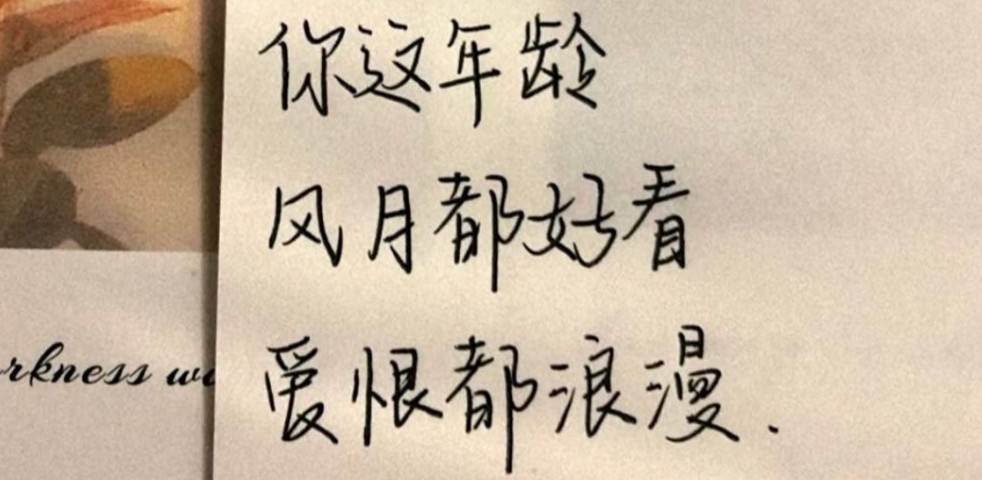 你这年龄
风月都好看
爱恨都浪漫.
rkness w